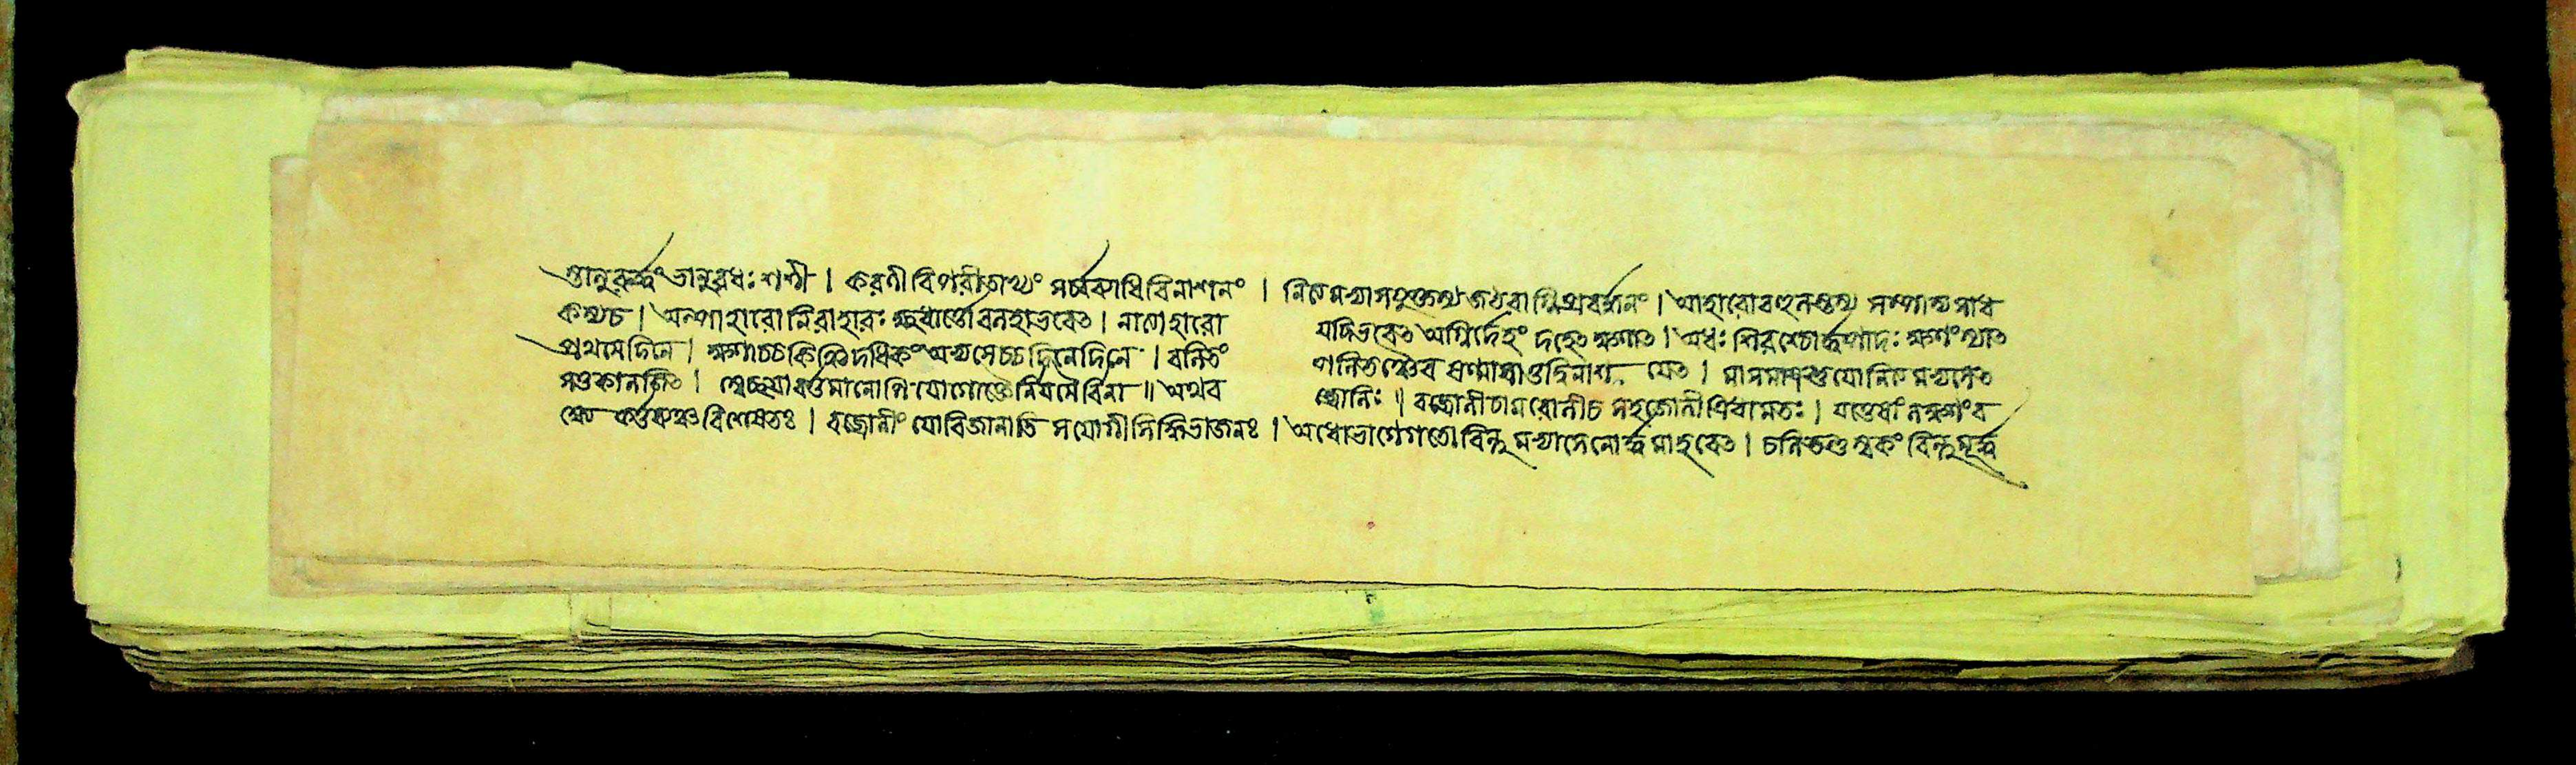 ত্তানুরূর্দ্ধং ভানুরধঃ শশী । করণী বিপরীতাখ্যং সর্ব্বব্যাধিবিনাশনং । নিত্যমভ্যাসযুক্তস্য জঠরাগ্নিপ্রবর্দ্ধনং । আহারোবহুলস্তস্য সম্পাদ্য সাধ
কস্যচ । অল্পাহারো নিরাহারঃ ক্ষুধার্ত্তো বনহাভবেৎ । নাল্পাহারো যদিভবেৎ অগ্নির্দেহং দহেৎ ক্ষণাৎ । অধঃ শিরশ্চোর্দ্ধপাদঃ ক্ষণং স্যাৎ
প্রথমেদিনে । ক্ষণাচ্চ কিঞ্চিদধিকং অভ্যসেচ্চ দিনেদিনে । বলিতং পলিতঞ্চৈব ষণ্মাসা যেৎ । যামমাত্রন্তু যোনিত্যমভ্যসেৎ
সতুকালজিৎ । স্বেচ্ছয়া বর্ত্তমানোপি যোগোক্তৈর্নিয়মৈর্বিনা ॥ অথব জ্রোলিঃ । বজ্রোলীচামরোলীচ সহজোলীত্রিধামতঃ । যত্তেষাং লক্ষণংব
ক্ষে কর্ত্তব্যঞ্চ বিশেষতঃ । বজ্রোলীং যোবিজানাতি সযোগীসিদ্ধিভাজনঃ । অধোভাগেগতো বিন্দুমভ্যাসেনোর্দ্ধমাহরেৎ । চলিতন্তু স্বকং বিন্দুমূর্দ্ধ